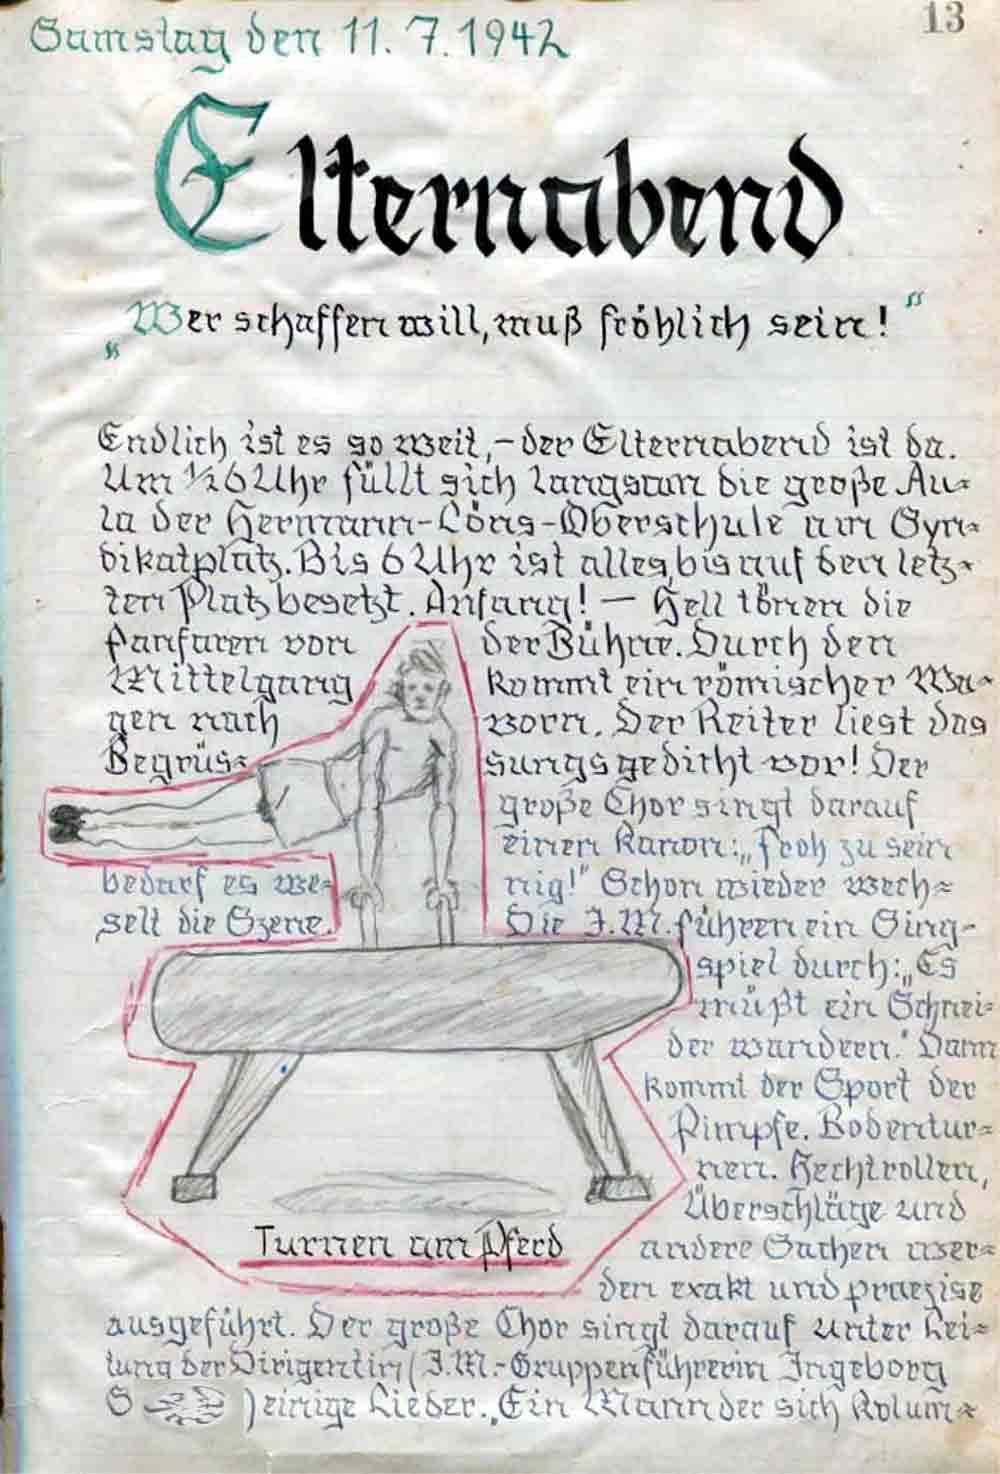 13
Samstag den 11. 7. 1942
Elternabend
„Wer schaffen will, muß fröhlich sein!“
Endlich ist es so weit, – der Elternabend ist da.
Um ½6 Uhr füllt sich langsam die große Au=
la der Hermann-Löns-Oberschule am Syn=
dikatplatz. Bis 6 Uhr ist alles bis auf den letz=
ten Platz besetzt. Anfang! – Hell tönen die
Fanfaren von der Bühne. Durch den
Mittelgang kommt ein römischer Wa=
gen nach vorn. Der Reiter liest das
Begrüs= sungsgedicht vor! Der
große Chor singt darauf
einen Kanon: „Froh zu sein
bedarf es we= nig!“ Schon wieder wech=
selt die Szene. Die J.M. führen ein Sing-
spiel durch: „Es
müßt ein Schnei=
der wandern.“ Dann
kommt der Sport der
Pimpfe. Bodentur=
nen. Hechtrollen,
Überschläge und
Turnen am Pferd
andere Sachen wer=
den exakt und praezise
ausgeführt. Der große Chor singt darauf unter Lei=
tung der Dirigentin (J.M.-Gruppenführerin Ingeborg
S ) einige Lieder. „Ein Mann der sich Kolum=